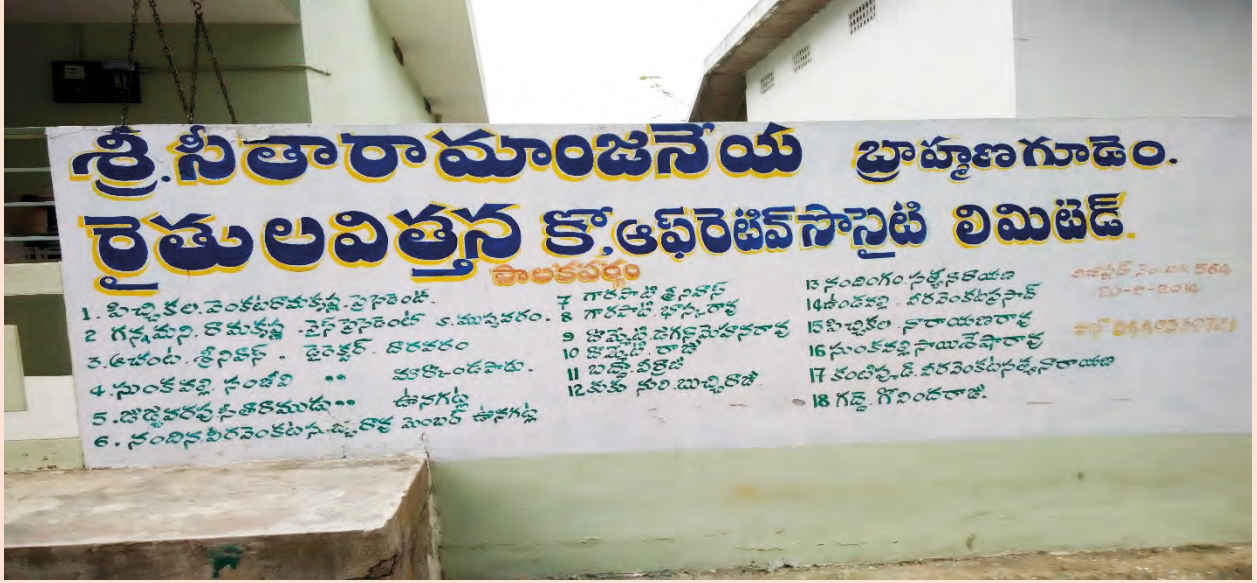 శ్రీ.సీతారామాంజనేయ బ్రాహ్మణగూడెం.
రైతులవిత్తన కో,ఆఫ్‌రెటివ్‌సొసైటి లిమిటెడ్.
పాలకవర్గం
1. పిచ్చికల.వెంకటరామకృష్ణ.ప్రెసిడెంట్.
2 గన్నమని.రామకృష్ణ .వైస్ ప్రెసిడెంట్ ఐ.ముప్పవరం.
3. ఆచంట. శ్రీనివాస్. డైరెక్టర్. దారవరం
4. సుంకవల్లి. సంజీవి " మార్కొండపాడు.
5. జుజ్జవరపు సీతారాముడు " ఊనగట్ల
6. నందిన.వీరవెంకటసుబ్బారావు మెంబర్ ఊనగట్ల
7 గారపాటి శ్రీనివాస్
8 గారపాటి. భాస్కరరావు
9 కొమ్మేటి జగన్మోహనరావు
10 కొమ్మేటి. రాజీ
11 బద్దా. వీర్రాజీ
12 కునుసూరి.బుచ్చిరాజీ.
13 నందిగం. సత్యనారాయణ
14 ఉండవల్లి. వీరవెంకటప్రసాద్
15 పిచ్చికల .నారాయణరావు
16 సుంకవల్లి సాయిశేషారావు
17 కంటిపూడి.వీరవెంకటసత్యనారాయణ
18 గద్దె. గోవిందరాజీ.
564
2014